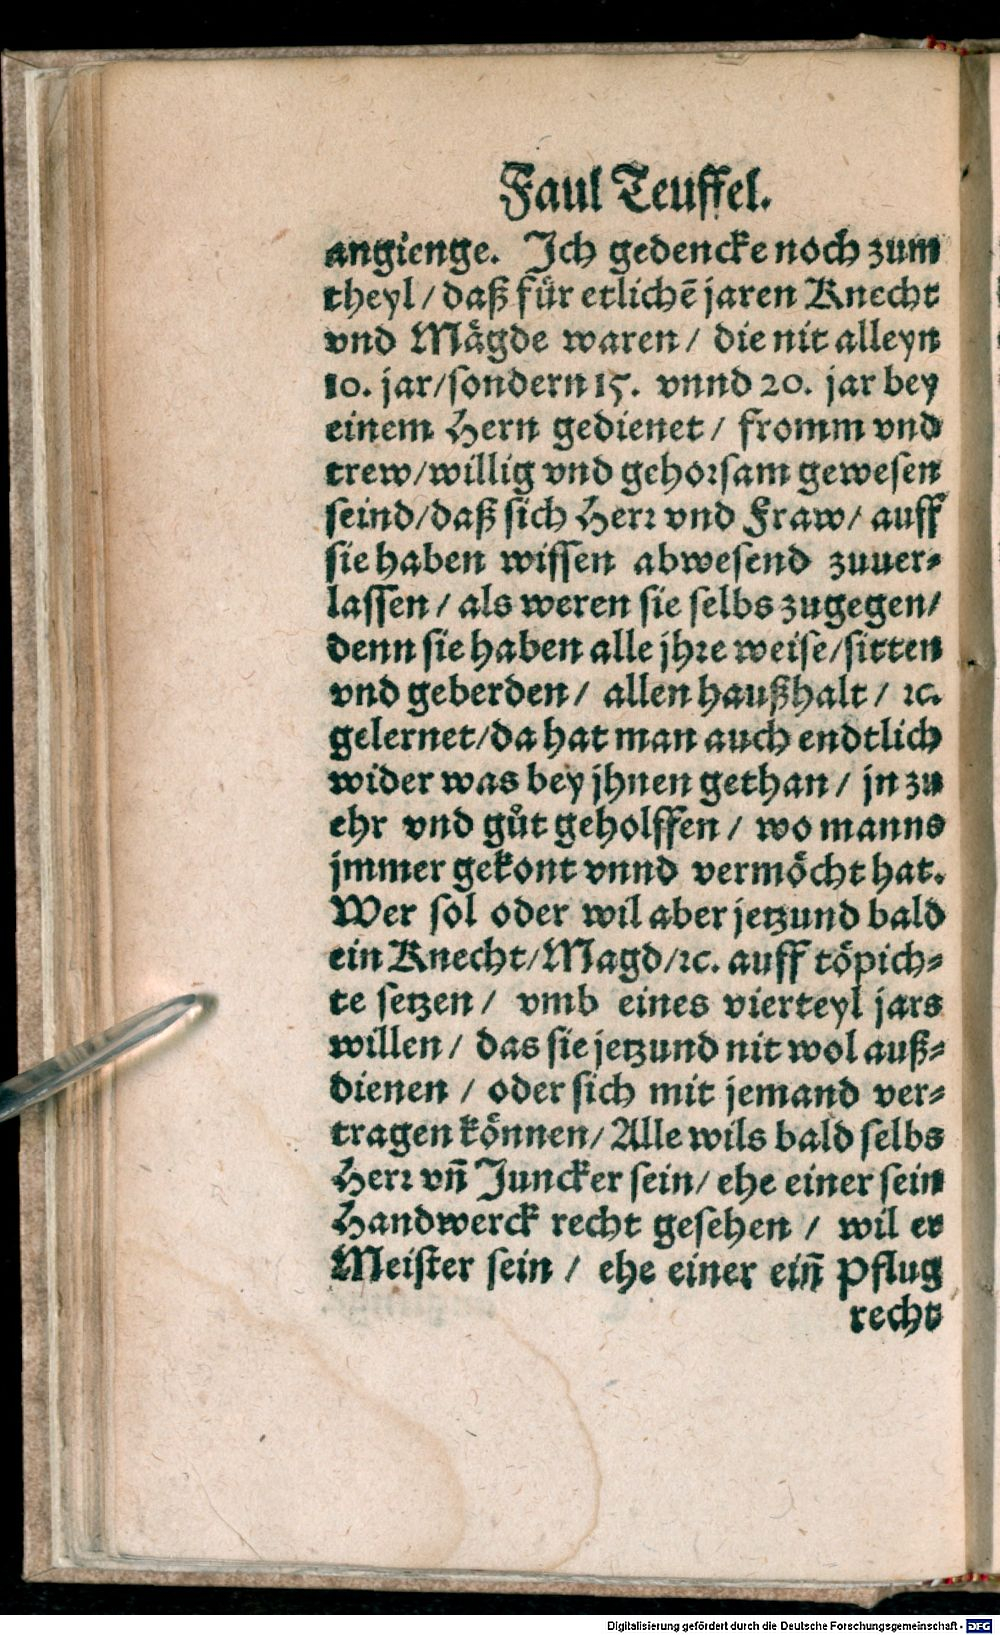 Faul Teuffel.
angienge. Ich gedencke noch zum
theyl / daß fuͤr etlichē jaren Knecht
vnd Maͤgde waren / die nit alleyn
10. jar/sondern 15. vnnd 20. jar bey
einem Hern gedienet / fromm vnd
trew/willig vnd gehorsam gewesen
seind/daß sich Herr vnd Fraw/ auff
sie haben wissen abwesend zuuer-
lassen / als weren sie selbs zugegen/
denn sie haben alle jhre weise/sitten
vnd geberden / allen haußhalt / ꝛc.
gelernet/da hat man auch endtlich
wider was bey jhnen gethan / jn zu
ehr vnd gůt geholffen / wo manns
jmmer gekont vnnd vermoͤcht hat.
Wer sol oder wil aber jetzund bald
ein Knecht/Magd/ꝛc. auff toͤpich-
te setzen / vmb eines vierteyl jars
willen / das sie jetzund nit wol auß-
dienen / oder sich mit jemand ver-
tragen koͤnnen/ Alle wils bald selbs
Herr vñ Juncker sein/ ehe einer sein
Handwerck recht gesehen / wil er
Meister sein / ehe einer ein̄ Pflug
recht
Digitalisierung gefördert durch die Deutsche Forschungsgemeinschaft - DFG